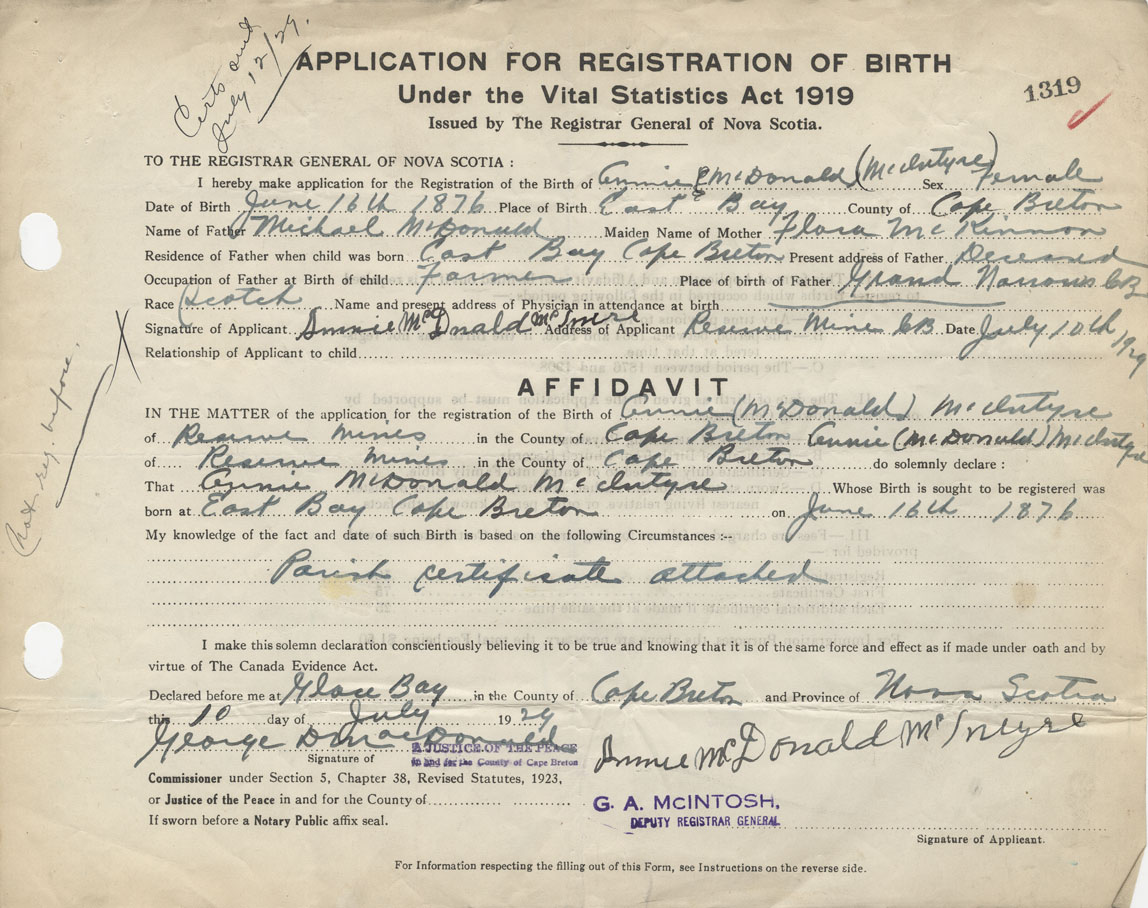 Certs and
July 12/29.
APPLICATION FOR REGISTRATION OF BIRTH
Under the Vital Statistics Act 1919
1319
Issued by The Registrar General of Nova Scotia.
TO THE REGISTRAR GENERAL OF NOVA SCOTIA :
I hereby make application for the Registration of the Birth of Annie McDonald (McIntyre) Sex Female
Date of Birth June 16th 1876 Place of Birth East Bay County of Cape Breton
Name of Father Michael McDonald Maiden Name of Mother Flora McKinnon
Residence of Father when child was born East Bay Cape Breton Present address of Father Deceased
Occupation of Father at Birth of child Farmer Place of birth of Father Grand Narrows CB
Race Scotch Name and present address of Physician in attendance at birth
Signature of Applicant Annie McDonald McInyre Address of Applicant Reserve Mine CB Date July 10th 1929
Relationship of Applicant to child
Not reg. before.
AFFIDAVIT
IN THE MATTER of the application for the registration of the Birth of Annie (McDonald) McIntyre
of Reserve Mines in the County of Cape Breton Annie (McDonald) McIntyre
of Reserve Mines in the County of Cape Breton do solemnly declare :
That Annie McDonald McIntyre Whose Birth is sought to be registered was
born at East Bay Cape Breton on June 16th 1876
My knowledge of the fact and date of such Birth is based on the following Circumstances :--
Parish certificate attached
I make this solemn declaration conscientiously believing it to be true and knowing that it is of the same force and effect as if made under oath and by
virtue of The Canada Evidence Act.
Declared before me at Glace Bay in the County of Cape Breton and Province of Nova Scotia
this 10 day of July 1929
George D MacDonald A JUSTICE OF THE PEACE
in and for the County of Cape Breton
Annie McDonald McInyre
Signature of
Commissioner under Section 5, Chapter 38, Revised Statutes, 1923,
or Justice of the Peace in and for the County of
G. A. McINTOSH,
DEPUTY REGISTRAR GENERAL
If sworn before a Notary Public affix seal.
Signature of Applicant.
For Information respecting the filling out of this Form, see Instructions on the reverse side.